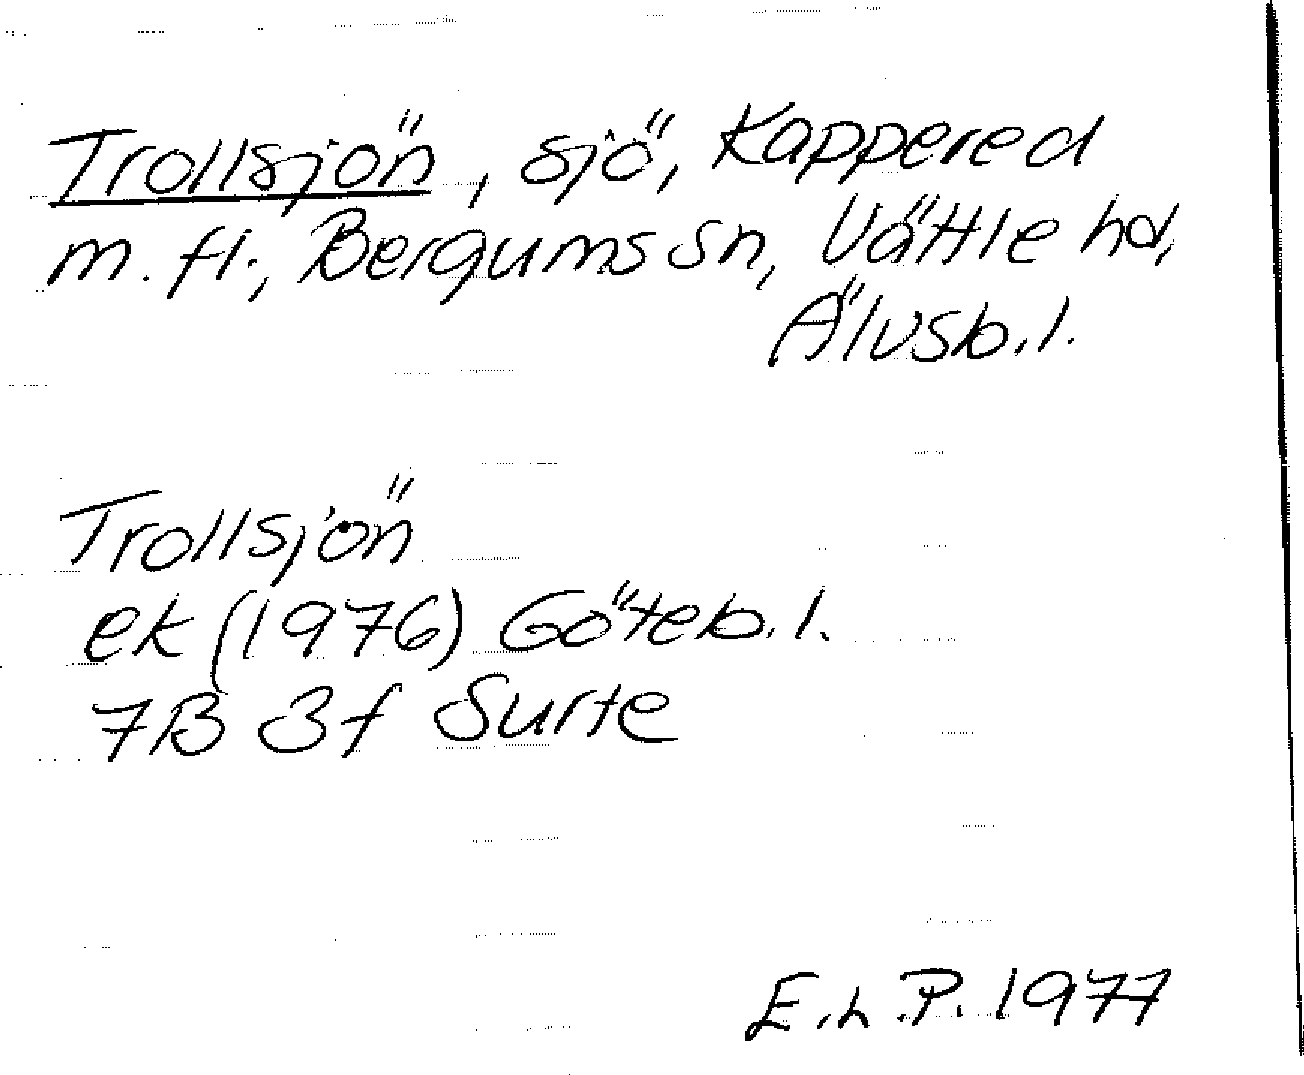 Trollsjön, sjö, Kappered
m. fl., Bergums sn, Vättle hd,
Älvsb. l.
Trollsjön
ek (1976) Göteb. l.
7B 3f Surte
E.L.P. 1977